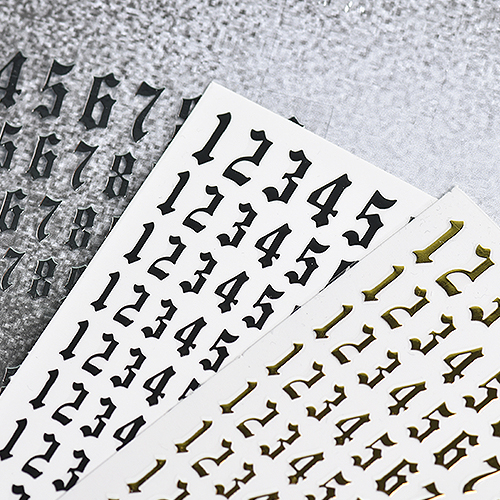 45678
5678
678
78
12345
12345
12345
12345
12345
1234
1234
123
12
123
1234
12345
123456
123456
12345
1234
123